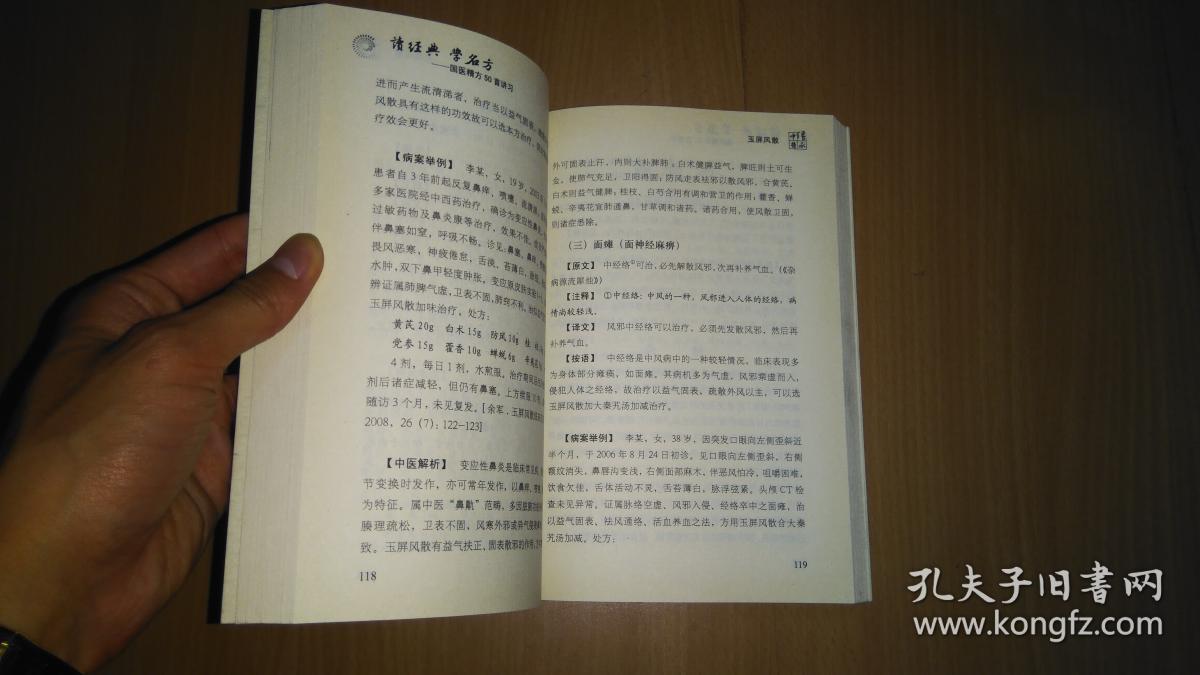 读经典 学名方
——国医精方50首讲习
进而产生流清涕者，治疗当以益气固表
风散具有这样的功效故可以选本方治疗
疗效会更好。
【病案举例】 李某，女，19岁，2003
患者自3年前起反复鼻痒，喷嚏，流清涕
多家医院经中西药治疗，确诊为变应性鼻炎
过敏药物及鼻炎康等治疗，效果不佳
伴鼻塞如窒，呼吸不畅。诊见：鼻塞，鼻痒
畏风恶寒，神疲倦怠，舌淡，苔薄白，脉
水肿，双下鼻甲轻度肿胀，变应原皮肤实验
辨证属肺脾气虚，卫表不固，肺窍不利
玉屏风散加味治疗，处方：
黄芪20g 白术15g 防风10g 桂
党参15g 藿香10g 蝉蜕6g
4剂，每日1剂，水煎服。治疗期间
剂后诸症减轻，但仍有鼻塞。上方
随访3个月，未见复发。[余军．玉屏风散
2008，26（7）：122—123]
【中医解析】 变应性鼻炎是临床常见
节变换时发作，亦可常年发作，以鼻痒
为特征。属中医“鼻鼽”范畴，多因脏腑功
腠理疏松，卫表不固，风寒外邪或异气侵袭
致。玉屏风散有益气扶正，固表散邪的作用，
118
玉屏风散
外可固表止汗，内则大补脾肺；白术健脾益气，脾旺则土可生
金，使肺气充足，卫阳得固；防风走表祛邪以散风邪，合黄芪、
白术则益气健脾；桂枝、白芍合用有调和营卫的作用；藿香、蝉
蜕、辛夷花宣肺通鼻，甘草调和诸药。诸药合用，使风散卫固，
则诸症悉除。
（三）面瘫（面神经麻痹）
【原文】 中经络①可治，必先解散风邪，次再补养气血。（《杂
病源流犀烛》）
【注释】 ①中经络：中风的一种，风邪进入人体的经络，病
情尚较轻浅。
【译文】 风邪中经络可以治疗，必须先发散风邪，然后再
补养气血。
【按语】 中经络是中风病中的一种较轻情况，临床表现多
为身体部分瘫痪，如面瘫。其病机多为气虚，风邪乘虚而入，
侵犯人体之经络，故治疗以益气固表，疏散外风以主，可以选
玉屏风散加大秦艽汤加减治疗。
【病案举例】 李某，女，38岁，因突发口眼向左侧歪斜近
半个月，于2006年8月24日初诊。见口眼向左侧歪斜，右侧
额纹消失，鼻唇沟变浅，右侧面部麻木，伴恶风怕冷，咀嚼困难，
饮食欠佳，舌体活动不灵，舌苔薄白，脉浮弦紧。头颅CT检
查未见异常。证属脉络空虚、风邪入侵、经络卒中之面瘫，治
以益气固表、祛风通络、活血养血之法，方用玉屏风散合大秦
艽汤加减。处方：
119
孔夫子旧书网
www.kongfz.com